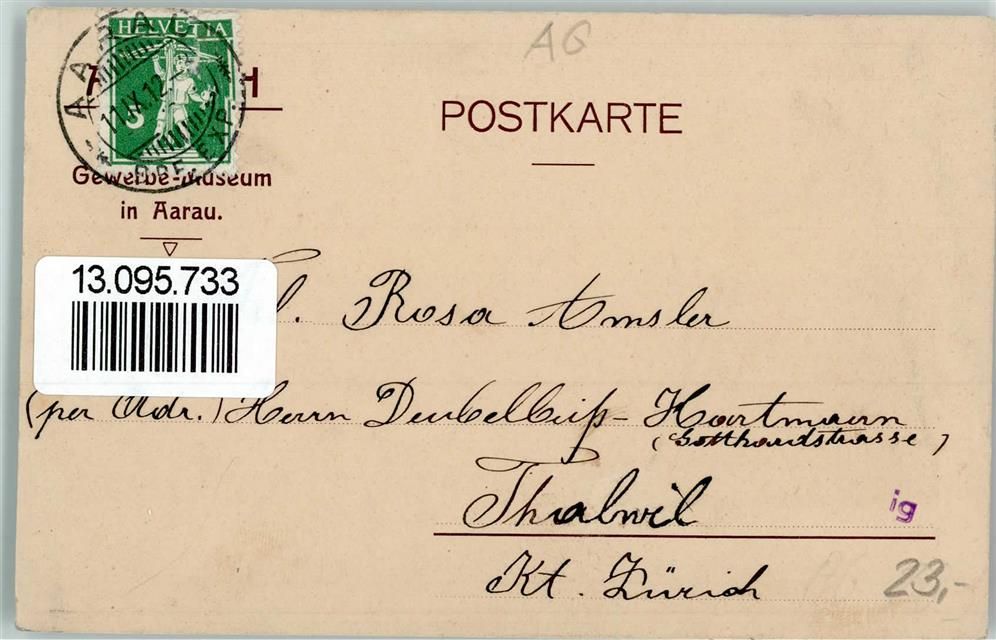 AG
HELVETIA
5
AARAU
11.IX.12
BRF. EXP.
H
POSTKARTE
Gewerbe-Museum
in Aarau.
13.095.733
Rosa Amsler
(per Adr.) Herrn Deubelbeiß-Hartmann
(Gotthardstrasse)
Thalwil
ig
Kt. Zürich
23,-